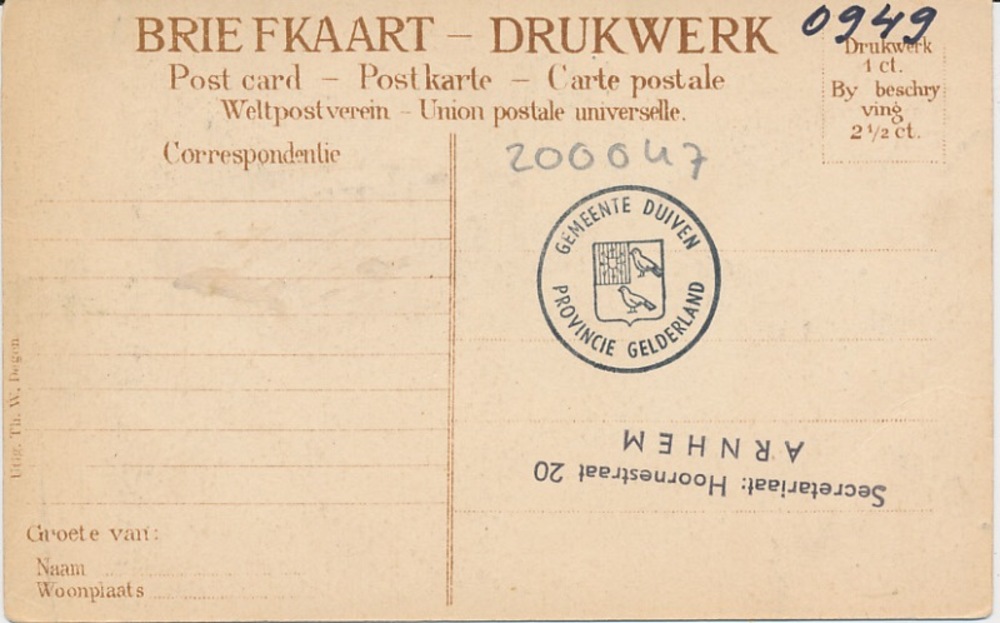 BRIEFKAART – DRUKWERK
Post card – Postkarte – Carte postale
Weltpostverein – Union postale universelle.
0949
Drukwerk
1 ct.
By beschry
ving
2 1/2 ct.
Correspondentie
200047
GEMEENTE DUIVEN
PROVINCIE GELDERLAND
Secretariaat: Hoornestraat 20
ARNHEM
Uitg. Th. W. Degen
Groete van:
Naam
Woonplaats